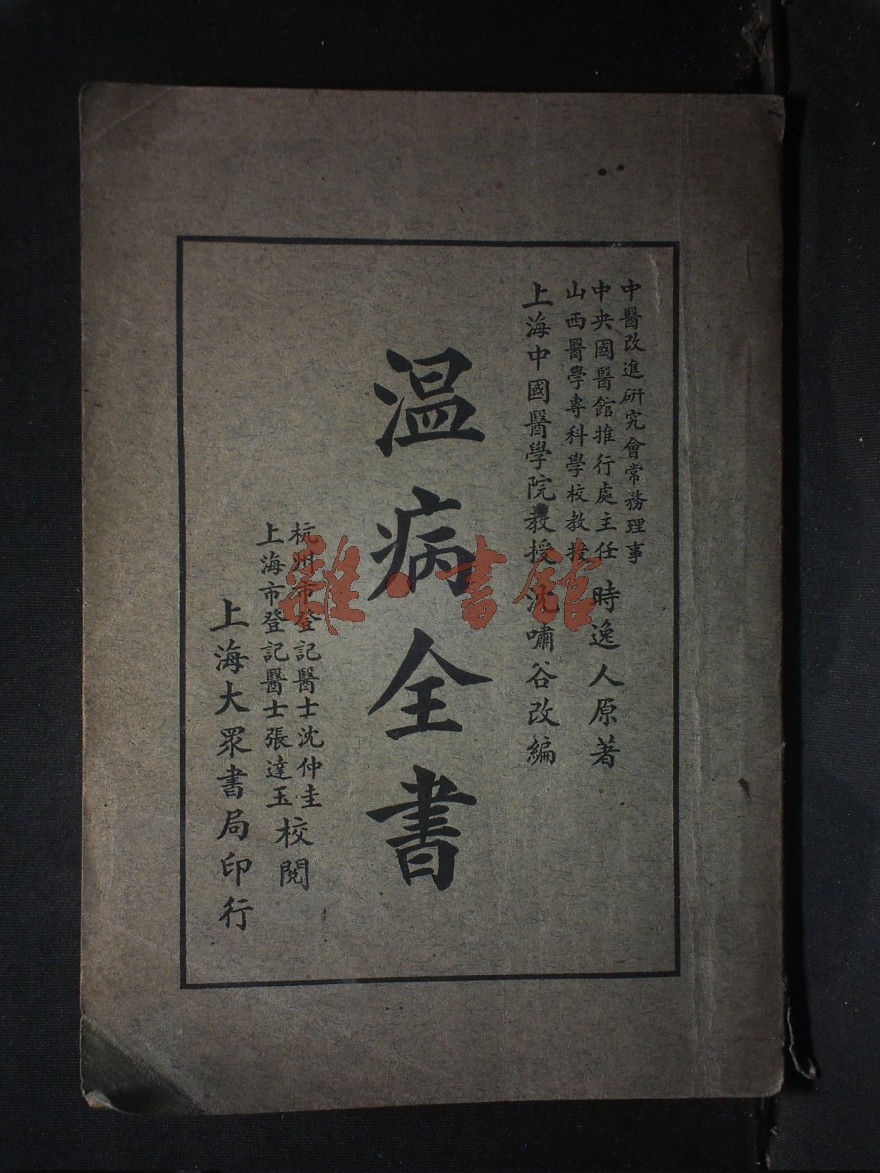 中醫改進研究會常務理事
中央國醫館推行處主任
山西醫學專科學校教授
時逸人原著
上海中國醫學院教授沈嘯谷改編
温病全書
杭州市登記醫士沈仲圭
上海市登記醫士張達玉
校閱
上海大眾書局印行
雜·書館